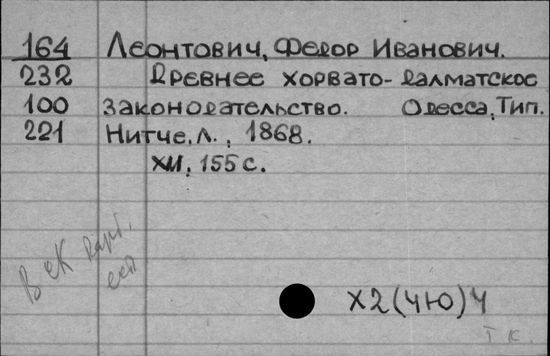 164 Леонтович, Федор Иванович.
232 Древнее хорвато-далматское
100 законодательство. Одесса, Тип.
221 Нитче, Л., 1868.
XII, 155 с.
В СК
Х2(4Ю)4
Т К.